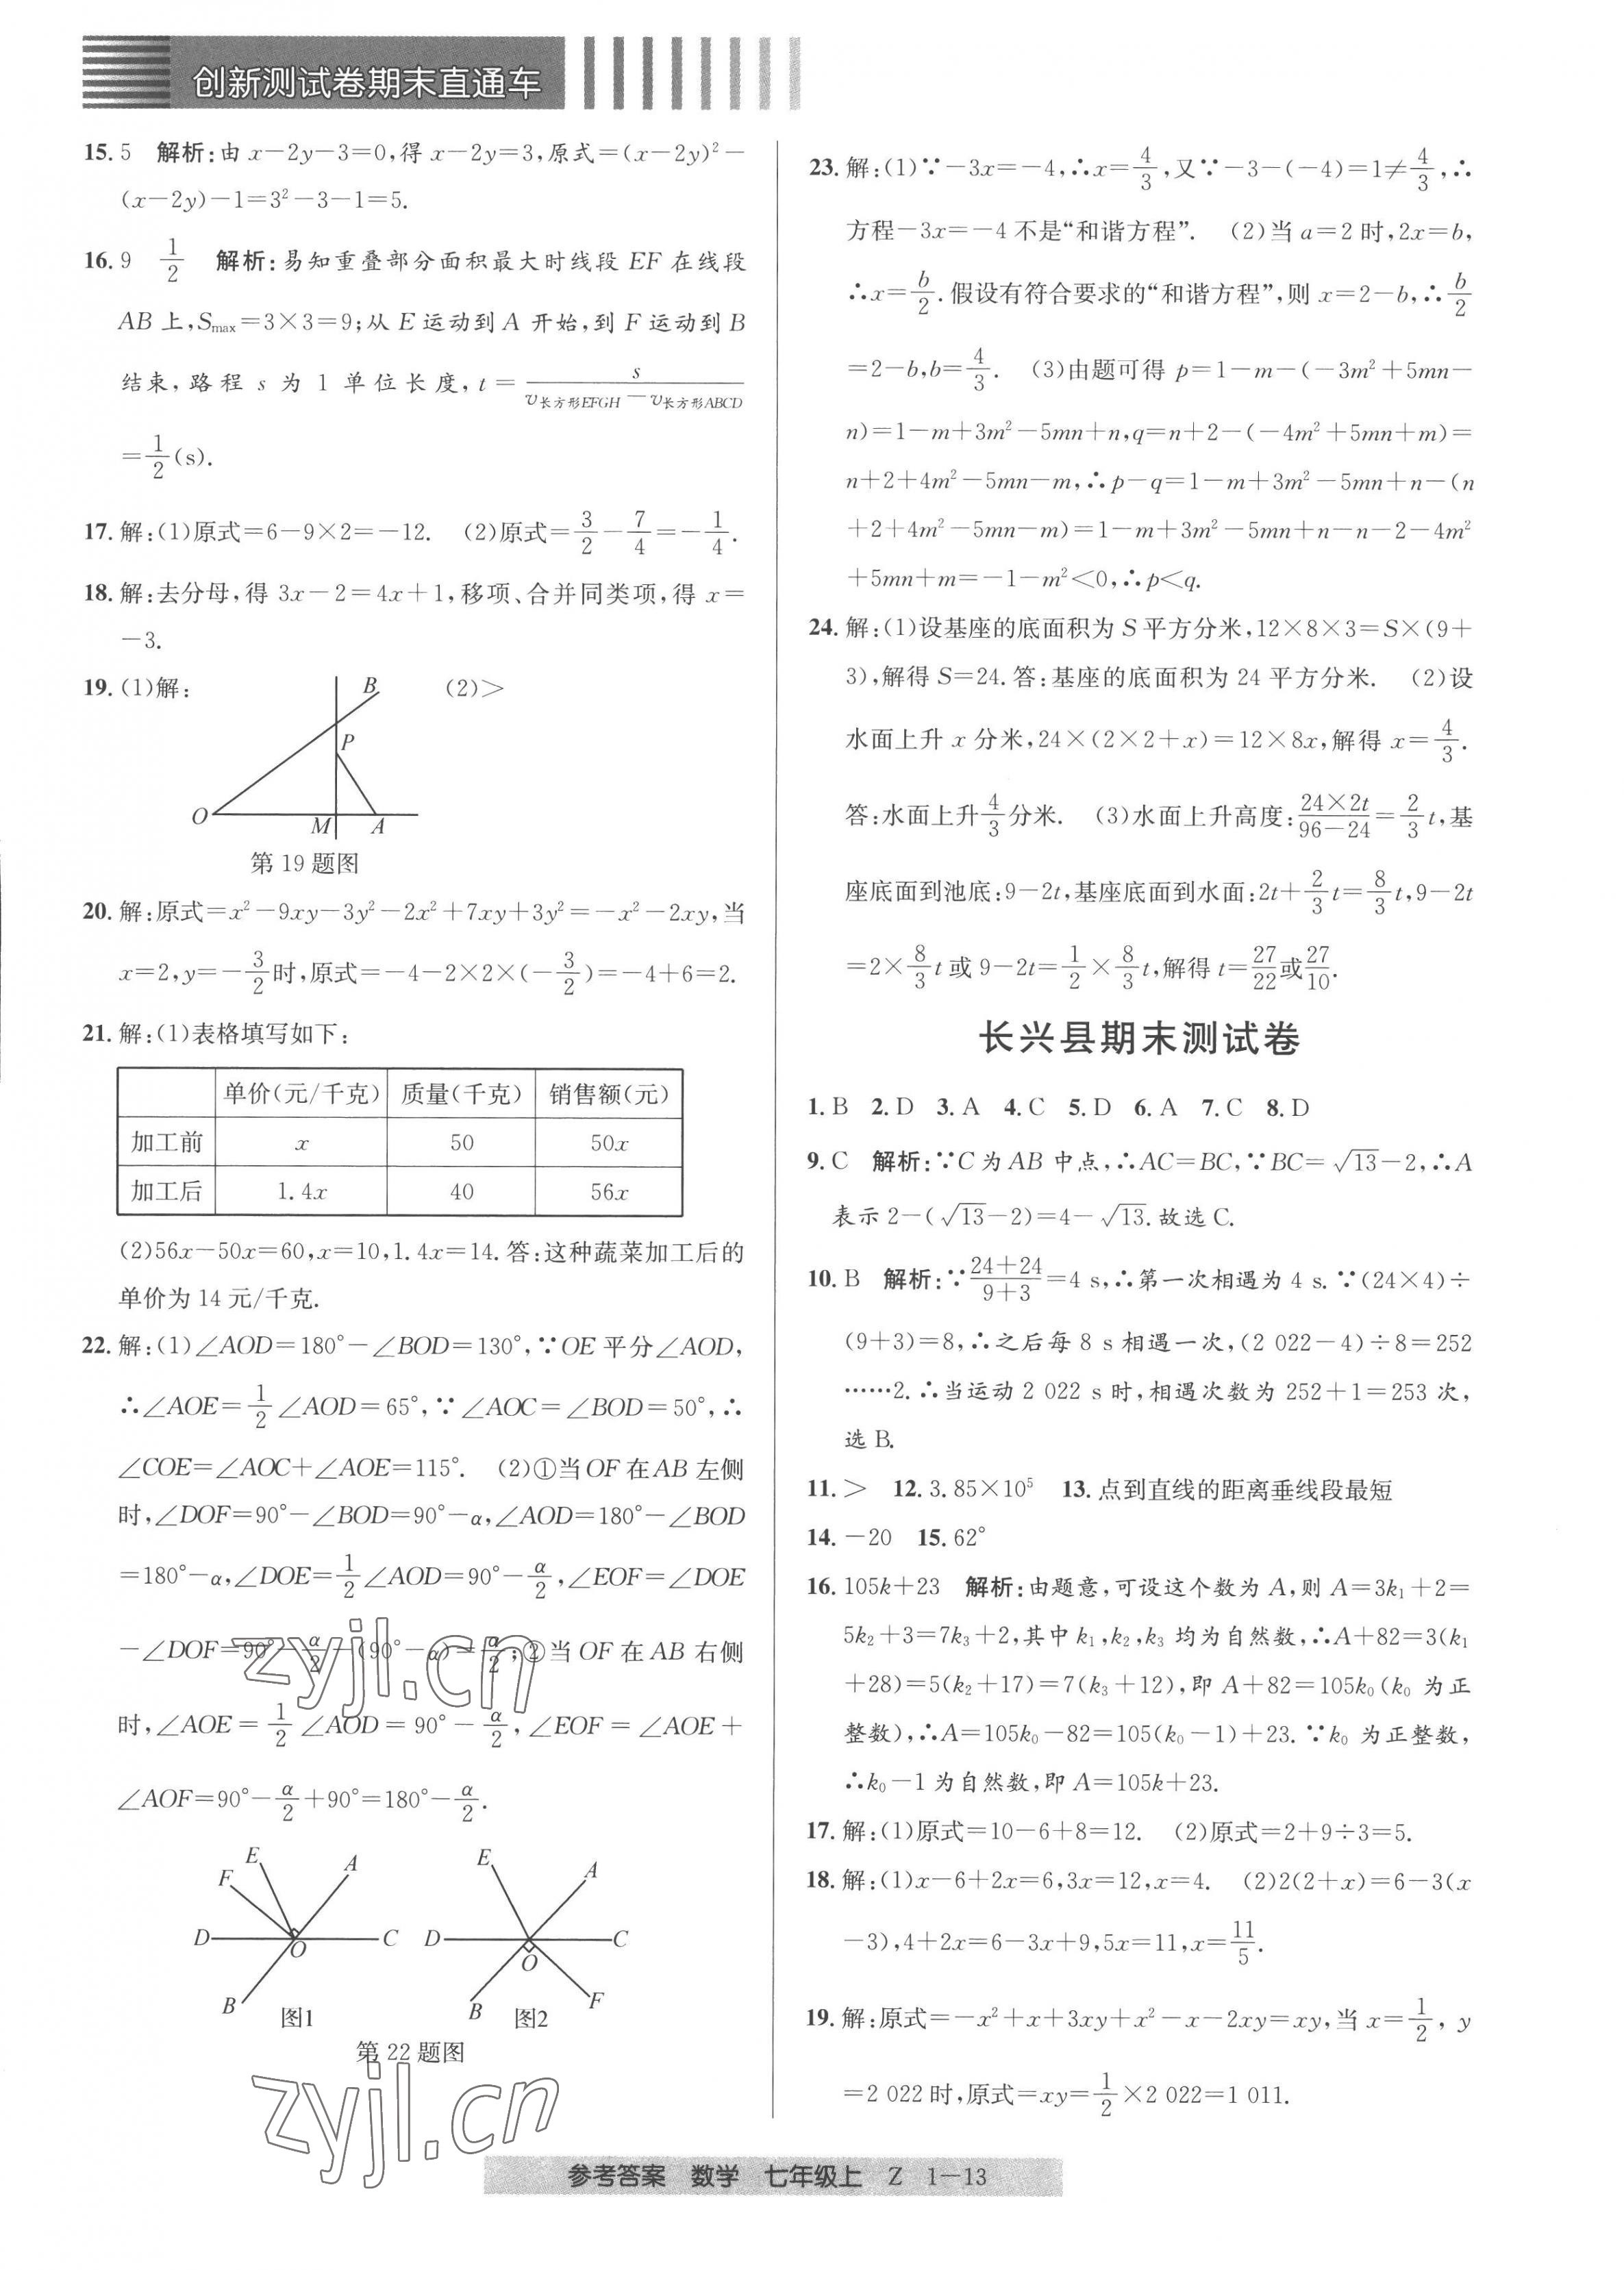 创新测试卷期末直通车
15. 5 解析:由 x-2y-3=0,得 x-2y=3,原式=(x-2y)²-
(x-2y)-1=3²-3-1=5.
16. 9 1/2 解析:易知重叠部分面积最大时线段 EF 在线段
AB 上,Smax=3×3=9;从 E 运动到 A 开始,到 F 运动到 B
结束,路程 s 为 1 单位长度,t=s/(v长方形EFGH-v长方形ABCD)
=1/2(s).
17. 解:(1)原式=6-9×2=-12. (2)原式=3/2-7/4=-1/4.
18. 解:去分母,得 3x-2=4x+1,移项、合并同类项,得 x=
-3.
19. (1)解: (2)>
B
P
O M A
第 19 题图
20. 解:原式=x²-9xy-3y²-2x²+7xy+3y²=-x²-2xy,当
x=2,y=-3/2时,原式=-4-2×2×(-3/2)=-4+6=2.
21. 解:(1)表格填写如下:
单价(元/千克) 质量(千克) 销售额(元)
加工前 x 50 50x
加工后 1.4x 40 56x
(2)56x-50x=60,x=10,1.4x=14.答:这种蔬菜加工后的
单价为 14 元/千克.
22. 解:(1)∠AOD=180°-∠BOD=130°,∵OE 平分∠AOD,
∴∠AOE=1/2∠AOD=65°,∵∠AOC=∠BOD=50°,∴
∠COE=∠AOC+∠AOE=115°. (2)①当 OF 在 AB 左侧
时,∠DOF=90°-∠BOD=90°-α,∠AOD=180°-∠BOD
=180°-α,∠DOE=1/2∠AOD=90°-α/2,∠EOF=∠DOE
-∠DOF=90°-α/2-(90°-α)=α/2;②当 OF 在 AB 右侧
时,∠AOE=1/2∠AOD=90°-α/2,∠EOF=∠AOE+
∠AOF=90°-α/2+90°=180°-α/2.
E F A D O C B 图1
E A D O C B F 图2
第 22 题图
zyjl.cn
zyjl.cn
23. 解:(1)∵-3x=-4,∴x=4/3,又∵-3-(-4)=1≠4/3,∴
方程-3x=-4 不是“和谐方程”. (2)当 a=2 时,2x=b,
∴x=b/2.假设有符合要求的“和谐方程”,则 x=2-b,∴b/2
=2-b,b=4/3. (3)由题可得 p=1-m-(-3m²+5mn-
n)=1-m+3m²-5mn+n,q=n+2-(-4m²+5mn+m)=
n+2+4m²-5mn-m,∴p-q=1-m+3m²-5mn+n-(n
+2+4m²-5mn-m)=1-m+3m²-5mn+n-n-2-4m²
+5mn+m=-1-m²<0,∴p<q.
24. 解:(1)设基座的底面积为 S 平方分米,12×8×3=S×(9+
3),解得 S=24.答:基座的底面积为 24 平方分米. (2)设
水面上升 x 分米,24×(2×2+x)=12×8x,解得 x=4/3.
答:水面上升4/3分米. (3)水面上升高度:(24×2t)/(96-24)=2/3t,基
座底面到池底:9-2t,基座底面到水面:2t+2/3t=8/3t,9-2t
=2×8/3t 或 9-2t=1/2×8/3t,解得 t=27/22或27/10.
长兴县期末测试卷
1. B 2. D 3. A 4. C 5. D 6. A 7. C 8. D
9. C 解析:∵C 为 AB 中点,∴AC=BC,∵BC=√13-2,∴A
表示 2-(√13-2)=4-√13.故选 C.
10. B 解析:∵(24+24)/(9+3)=4 s,∴第一次相遇为 4 s.∵(24×4)÷
(9+3)=8,∴之后每 8 s 相遇一次,(2 022-4)÷8=252
……2.∴当运动 2 022 s 时,相遇次数为 252+1=253 次,
选 B.
11. > 12. 3.85×10⁵ 13. 点到直线的距离垂线段最短
14. -20 15. 62°
16. 105k+23 解析:由题意,可设这个数为 A,则 A=3k₁+2=
5k₂+3=7k₃+2,其中 k₁,k₂,k₃ 均为自然数,∴A+82=3(k₁
+28)=5(k₂+17)=7(k₃+12),即 A+82=105k₀(k₀ 为正
整数),∴A=105k₀-82=105(k₀-1)+23.∵k₀ 为正整数,
∴k₀-1 为自然数,即 A=105k+23.
17. 解:(1)原式=10-6+8=12. (2)原式=2+9÷3=5.
18. 解:(1)x-6+2x=6,3x=12,x=4. (2)2(2+x)=6-3(x
-3),4+2x=6-3x+9,5x=11,x=11/5.
19. 解:原式=-x²+x+3xy+x²-x-2xy=xy,当 x=1/2, y
=2 022 时,原式=xy=1/2×2 022=1 011.
参考答案 数学 七年级上 Z 1-13